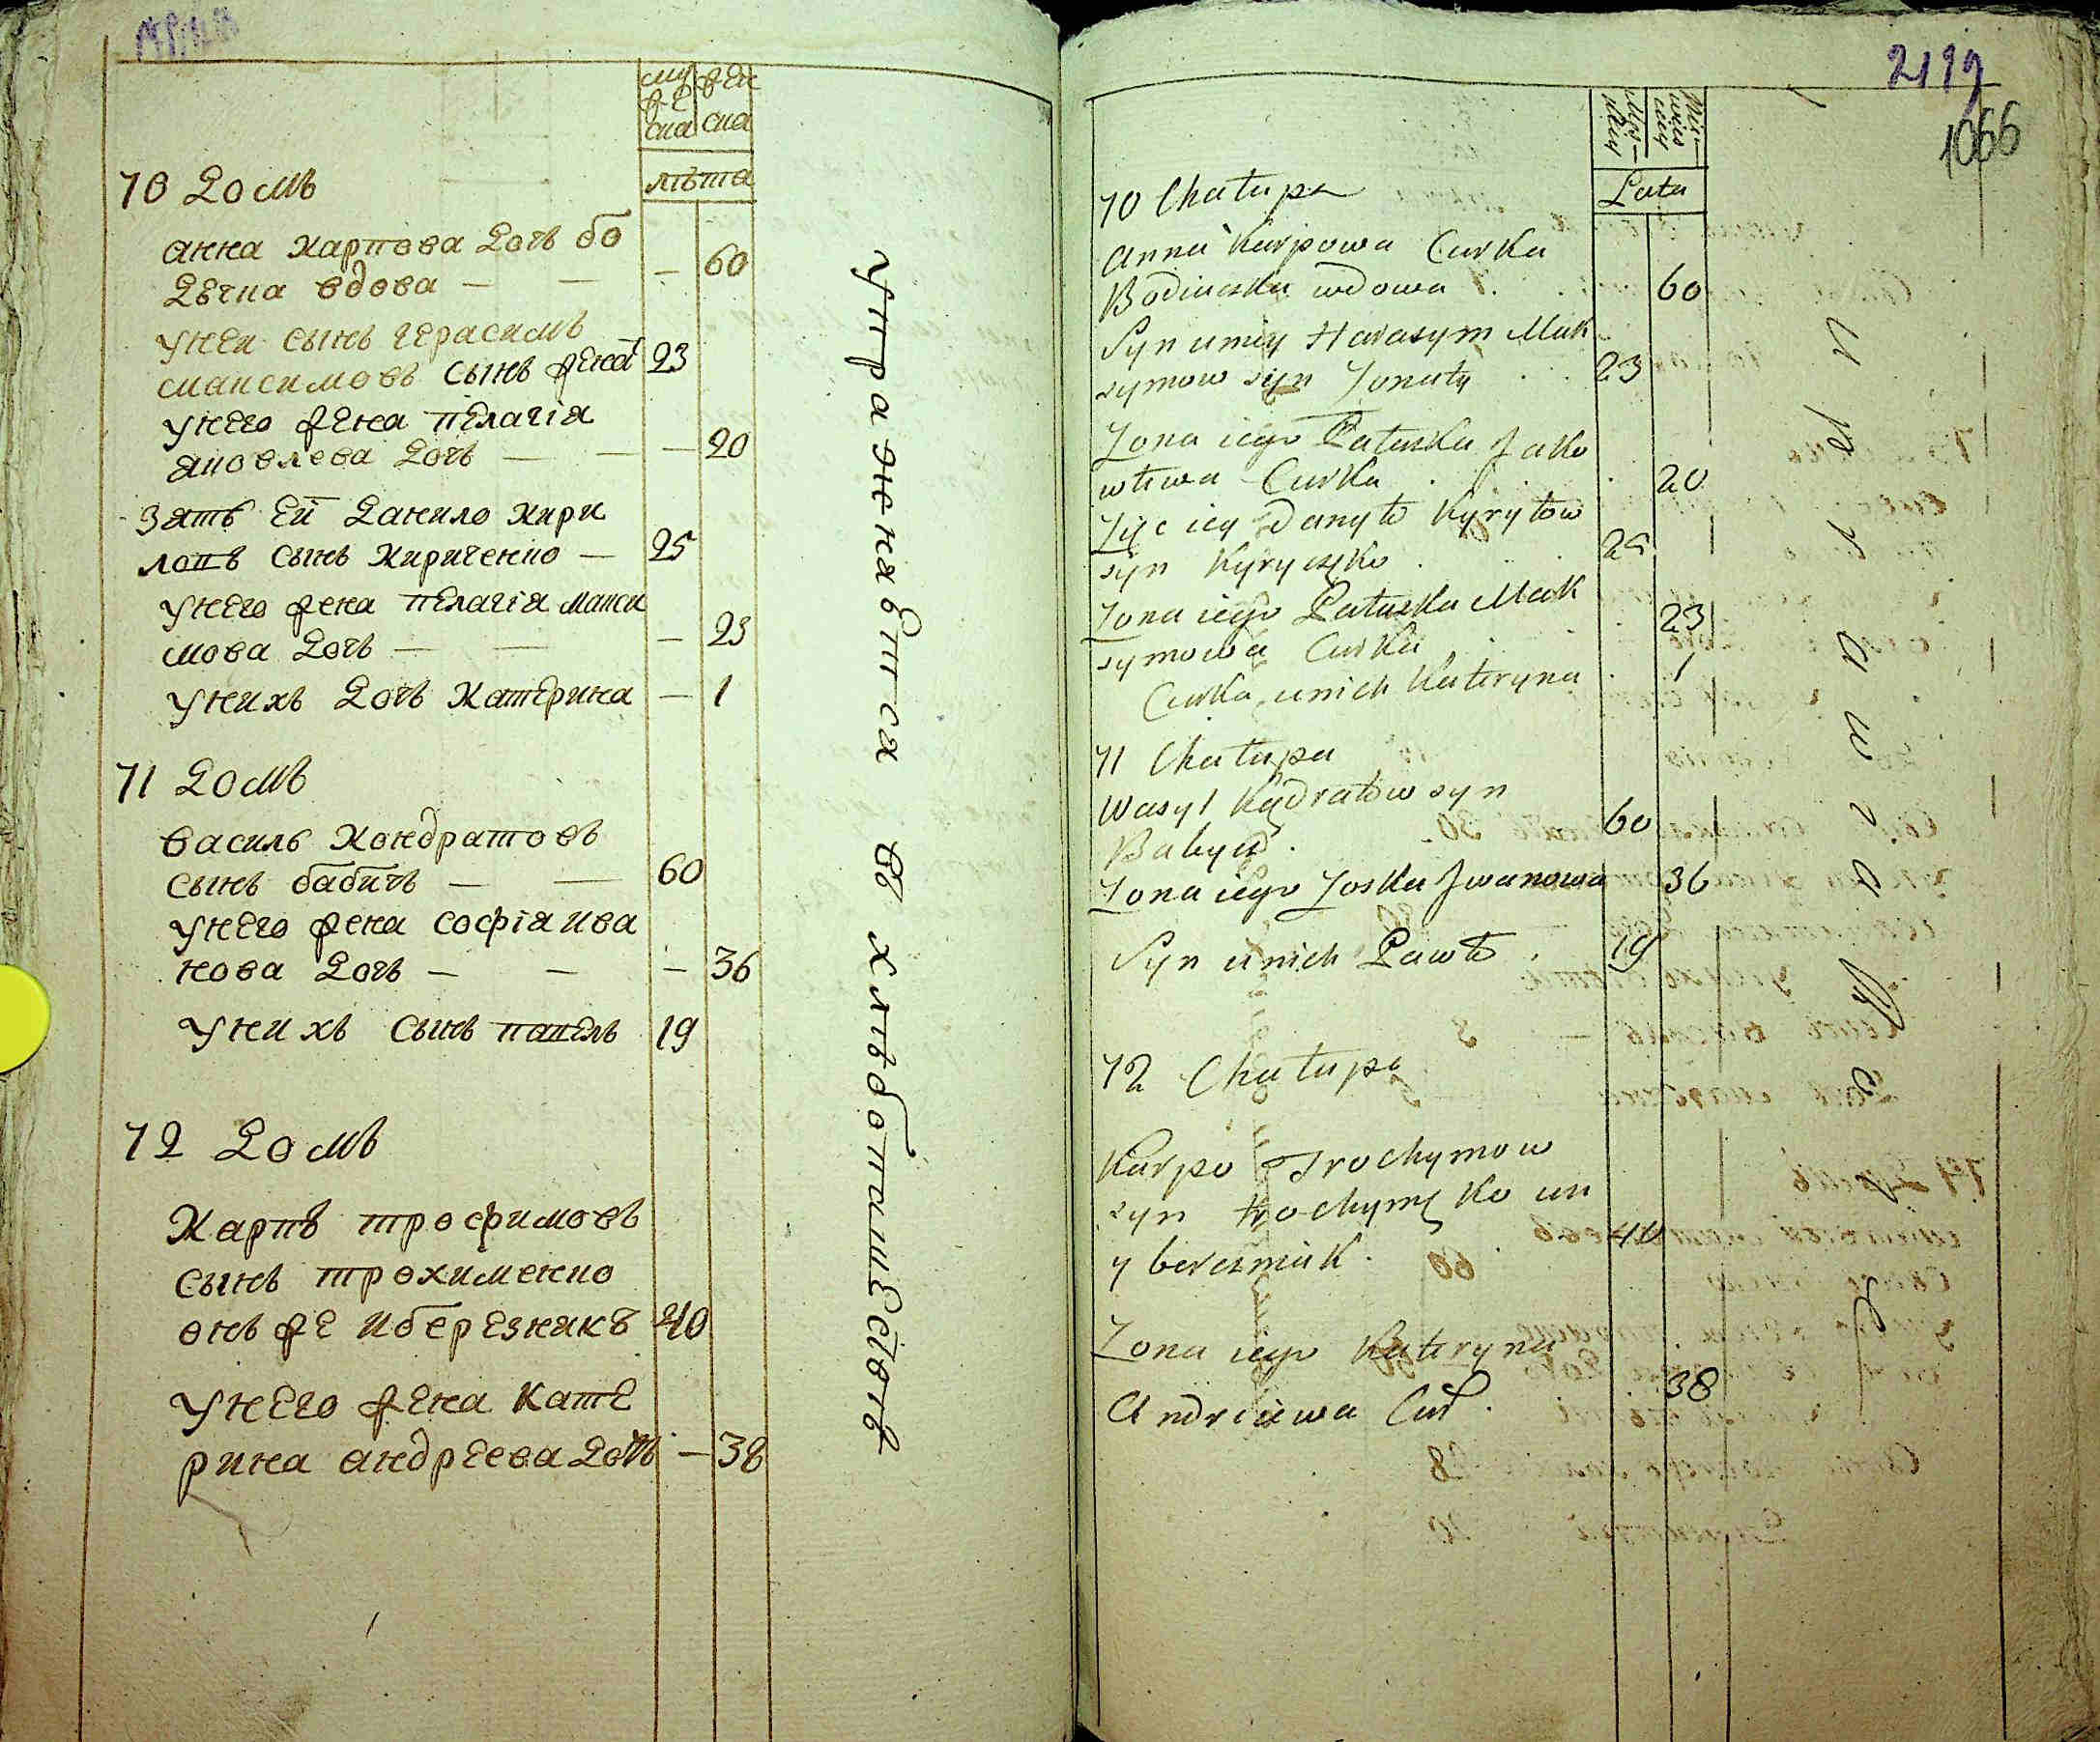 муж
ска
жен
ска
лѣта
70 Домъ
Анна Карпова дочь бо
дечка вдова — — — 60
У неи сынъ Герасимъ
Максимовъ сынъ женат 23
У него жена Пелагія
Яковлева дочь — — — 20
Зять ей Данило Кири
ловъ сынъ Кириченко — 25
У него жена Пелагія Макси
мова дочь — — — 23
У нихъ дочь Катерина — 1
71 Домъ
Василь Кондратовъ
сынъ Бабичъ — — 60
У него жена Софія Ива
нова дочь — — — 36
У нихъ сынъ Павелъ 19
72 Домъ
Карпъ Трофимовъ
сынъ Трохименко
онъ же и Березникъ 40
У него жена Кате
рина Андреева дочь — 38
упражняется въ хлѣбопашествѣ
2199
1066
Lata
70 Chałupa
Anna Karpowa Curka
Bodiaczka wdowa . . 60
Syn u niey Harasym Mak
symow syn żonaty . . 23
Zona iego Pałaszka Jako
wlewa Curka . . . 20
Zięc iey Danyło Kyryłow
syn Kyryczęko . 25
Zona iego Pałaszka Mak
symowa Curka . 23
Curka u nich Kateryna . 1
71 Chałupa
Wasyl Kądratow syn
Babycz . 60
Zona iego Zoska Jwanowa 36
Syn u nich Pawło . 19
72 Chałupa
Karpo Trochymow
syn Trochymęko on
y berezniak . 40
Zona iego Kateryna
Andrciewa Cur . 38